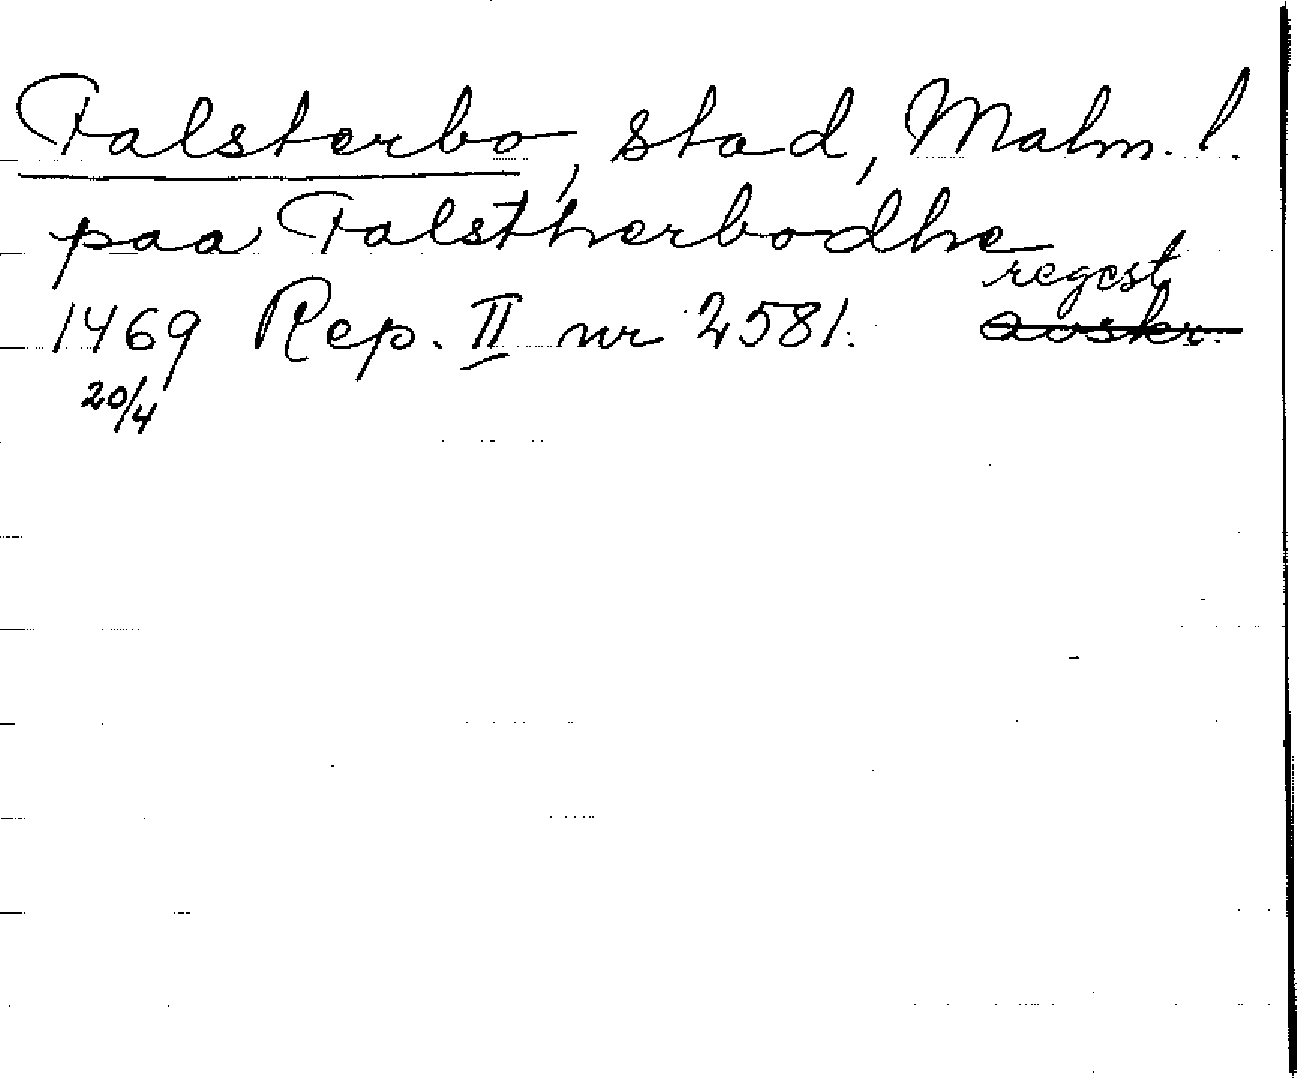 Falsterbo, stad, Malm. l.
paa Falstherbodhe
regest
1469 Rep. II nr 2581. avskr.
20/4